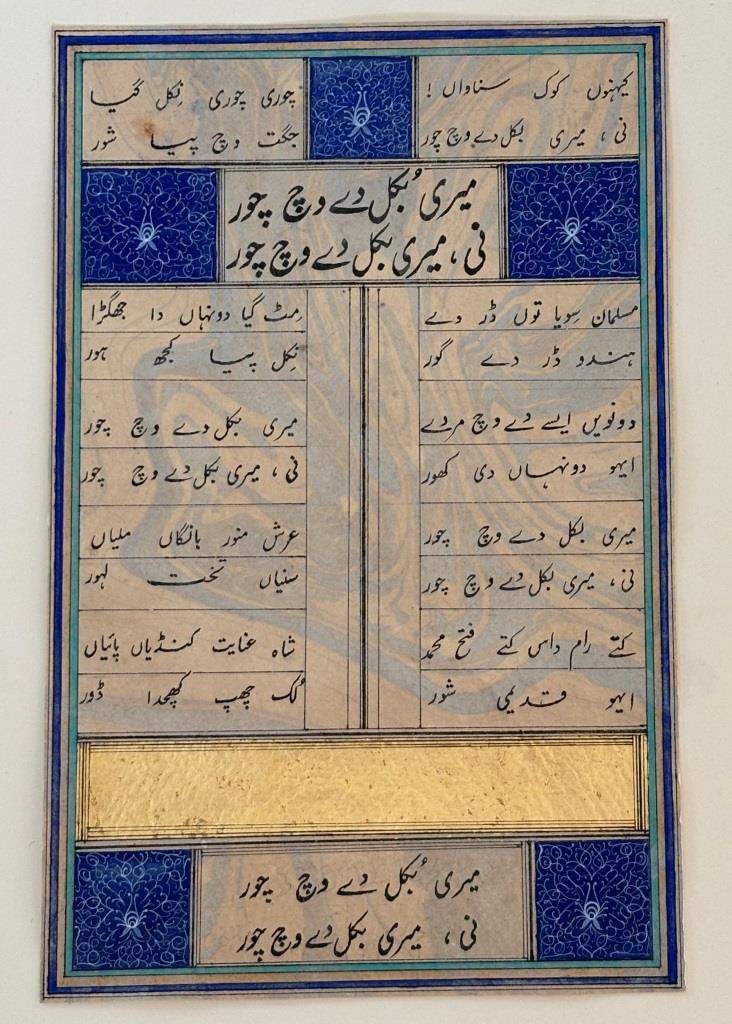 کیہنوں کوک سناواں !
نی ، میری بکل دے وچ چور
چوری چوری نِکل گیا
جگت وچ پیا شور
میری بُکل دے وچ چور
نی ، میری بکل دے وچ چور
مسلمان سِویا توں ڈر دے
ہندو ڈر دے گور
دونویں ایسے دے وچ مردے
ایہو دونہاں دی کھور
میری بکل دے وچ چور
نی ، میری بکل دے وچ چور
کتے رام داس کتے فتح محمد
ایہو قدیمی شور
مِٹ گیا دونہاں دا جھگڑا
نِکل پیا کجھ ہور
میری بکل دے وچ چور
نی ، میری بکل دے وچ چور
عرش منور بانگاں ملیاں
سنیاں تخت لہور
شاہ عنایت کنڈیاں پائیاں
لُک چھپ کھچدا ڈور
میری بُکل دے وچ چور
نی ، میری بکل دے وچ چور